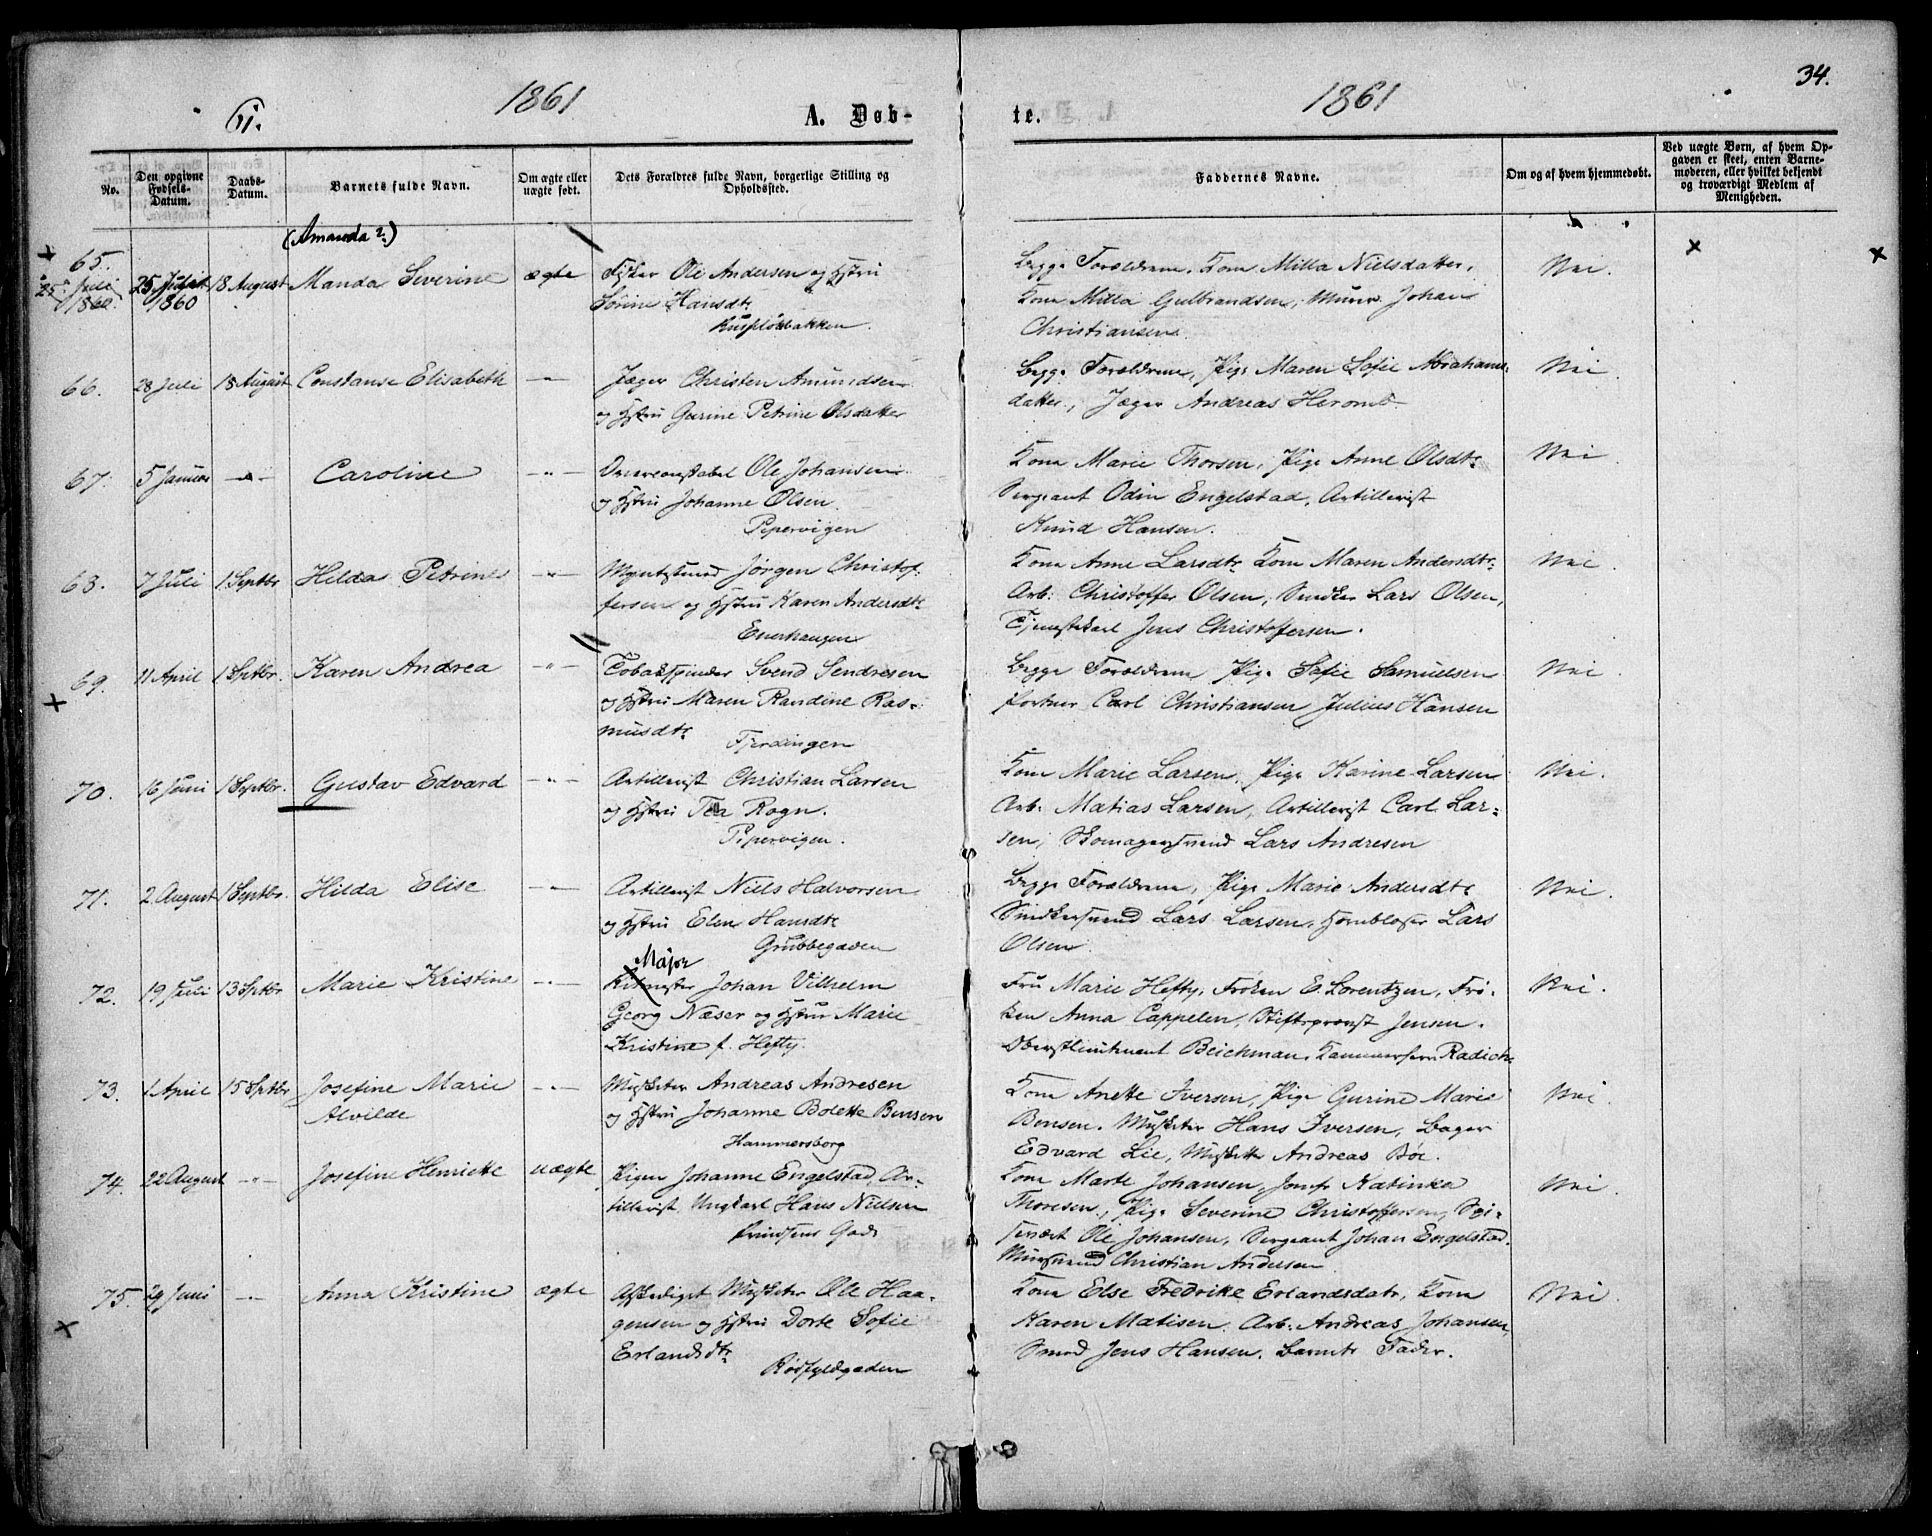 61.
1861
A. Døb-
No.
Den opgivne Fødsels-Datum.
Daabs-Datum.
Barnets fulde Navn.
Om ægte eller uægte født.
Dets Forældres fulde Navn, borgerlige Stilling og Opholdssted.
(Amanda?)
65.
25 Juli 1860.
25 Juli 1860
18 August
Manda Severine
ægte
Ole Andersen og Hstru
Sørine Hansdt.
66.
28 Juli
18 August
Constanse Elisabeth
-"-
Jæger Christen Amundsen
og Hstru Gurine Petrine Olsdatter
67.
5 Januar
-"-
Caroline
-"-
Ole Johansen
og Hstru Johanne Olsen.
Pipervigen
68.
7 Juli
1 Septbr
Hilda Petrine
-"-
Jørgen Christof-
fersen og Hstru Karen Andersdtr
Enerhaugen
69.
11 April
1 Septbr.
Karen Andrea
-"-
Tobakspinder Svend Sendresen
og Hstru Maren Randine Ras-
musdtr
Fjerdingen
70.
16 Juni
1 Septbr.
Gustav Edvard
-"-
Artillerist Christian Larsen
og Hstru Tea Rogn.
Pipervigen.
71.
2 August
1 Septbr.
Hilda Elise
-"-
Artillerist Niels Halvorsen
og Hstru Elen Hansdtr
Grubbegaden
72.
19 Juli
13 Septbr
Marie Kristine
-"-
Major
Ritmester Johan Vilhelm
Georg Næser og Hstru Marie
Kristine f. Hefty.
73.
1 April
15 Septbr
Josefine Marie
Alvilde
-"-
Musketer Andreas Andresen
og Hstru Johanne Bolette Bensen
Hammersborg
74.
22 August
-"-
Josefine Henriette
uægte
Pigen Johanne Engelstad, Ar-
tillerist Ungkarl Hans Nielsen
Prindsens Gade
75.
29 Juni
-"-
Anna Kristine
ægte
Afskediget Musketer Ole Haa-
gensen og Hstru Dorte Sofie
Erlandsdtr
Rødfyldgaden
1861
34.
te.
Faddernes Navne.
Om og af hvem hjemmedøbt.
Ved uægte Børn, af hvem Op-
gaven er skeet, enten Barne-
moderen, eller hvilket bekjendt
og troværdigt Medlem af
Menigheden.
Begge Forældrene. Kone Milla Nielsdatter,
Kone Milla Gulbrandsen, Murer Johan
Christiansen
Nei.
Begge Forældrene, Pige Maren Sofie Abrahams-
datter, Jæger Andreas
Nei.
Kone Marie Thorsen, Pige Anne Olsdtr
Sergeant Odin Engelstad, Artillerist
Knud Hansen.
Nei.
Kone Anne Larsdtr Kone Maren Andersdtr
Arb. Christoffer Olsen, Snedker Lars Olsen,
Tjenestekarl Jens Christoffersen.
Nei.
Begge Forældrene Pige Sofie Samuelsen
Carl Christiansen Julius Hansen
Nei.
Kone Marie Larsen, Pige Karine Larsen
Arb. Matias Larsen, Artillerist Carl Lar-
sen, Skomagersvend Lars Andresen
Nei.
Begge Forældrene, Pige Marie Andersdtr
Snedkersvend Lars Larsen, Hornblæser Lars
Olsen
Nei.
Fru Marie Hefty, Frøken E. Lorentzen, Frø-
ken Anna Cappelen, Stiftsprovst Jensen.
Oberstlieutnant Beichman, Kammerherre Radich
Nei.
Kone Anette Iversen, Pige Gurine Marie
Bensen. Musketer Hans Iversen, Bager
Edvard Lie, Musketer Andreas Bøe.
Nei.
Kone Marte Johansen, Jomf. Katinka
Thoresen, Pige Severine Christoffersen,
Ole Johansen, Sergeant Johan Engelstad.
Mursvend Christian Andersen
Nei.
Kone Else Fredrike Erlandsdatr, Kone
Karen Matisen. Arb. Andreas Johansen,
Smed Jens Hansen. Barnets Fader.
Nei.